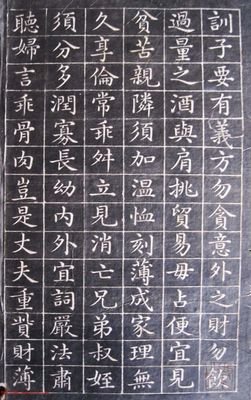 訓子要有義方勿貪意外之財勿飲
過量之酒與肩挑貿易毋占便宜見
貧苦親隣須加温恤刻薄成家理無
久享倫常乖舛立見消亡兄弟叔姪
須分多潤寡長幼內外宜詞嚴法肅
聽婦言乖骨肉豈是丈夫重貲財薄